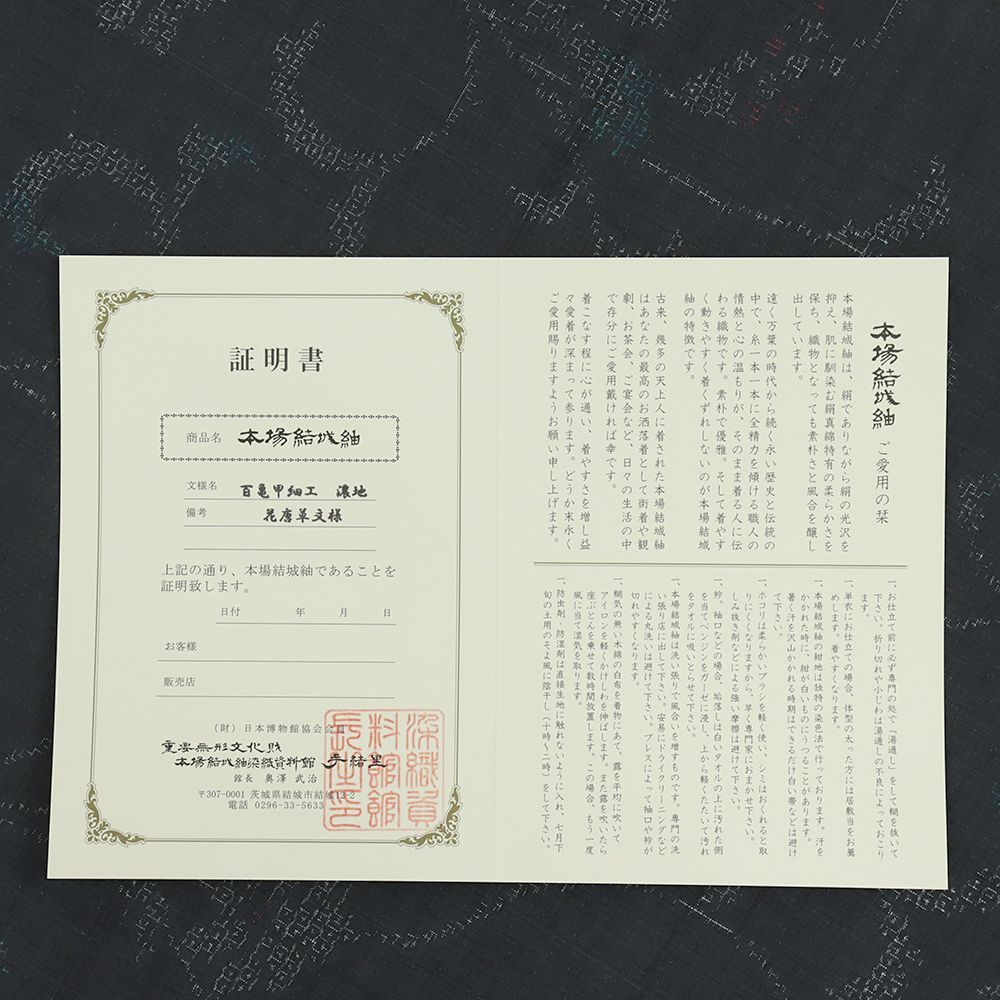 本場結城紬 ご愛用の栞
本場結城紬は、絹でありながら絹の光沢を
抑え、肌に馴染む絹真綿特有の柔らかさを
保ち、織物となっても素朴さと風合を醸し
出しています。
遠く万葉の時代から続く永い歴史と伝統の
中で、糸一本一本に全精力を傾ける職人の
情熱と心の温もりが、そのまま着る人に伝
わる織物です。素朴で優雅。そして着やす
く動きやすく着くずれしないのが本場結城
紬の特徴です。
古来、幾多の天上人に着された本場結城紬
はあなたの最高のお洒落着として街着や観
劇、お茶会、ご宴会など、日々の生活の中
で存分にご愛用戴ければ幸です。
着こなす程に心が通い、着やすさを増し益
々愛着が深まって参ります。どうか末永く
ご愛用賜りますようお願い申し上げます。
一、お仕立て前に必ず専門の処で「湯通し」をして糊を抜いて
下さい。折り切れや小じわは湯通しの不良によっておこり
ます。
一、単衣にお仕立ての場合、体型の太った方には居敷当をお薦
めします。着やすくなります。
一、本場結城紬の紺地は独特の染色法で行っております。汗を
かかれた時に、紺が白いものにうつることがあります。
暑く汗を沢山かかれる時期はできるだけ白い帯などは避け
て下さい。
一、ホコリは柔らかいブラシを軽く使い、シミはおくれると取
りにくくなりますから、早く専門家におまかせ下さい。
しみ抜き剤などによる強い摩擦は避けて下さい。
一、衿、袖口などの場合、垢落しは白いタオルの上に汚れた側
を当てベンジンをガーゼに浸し、上から軽くたたいて汚れ
をタオルに吸いとらせて下さい。
一、本場結城紬は洗い張りで風合いを増すものです。専門の洗
い張り店に出して下さい。安易にドライクリーニングなど
による丸洗いは避けて下さい。プレスによって袖口や衿が
切れやすくなります。
一、糊気の無い木綿の白布を着物にあて、露を平均に吹いて
アイロンを軽くかけしわを伸ばします。また露を吹いたら
座ぶとんを乗せて数時間放置します。この場合、もう一度
風に当て湿気を取ります。
一、防虫剤・防湿剤は直接生地に触れないように入れ、七月下
旬の土用のそよ風に陰干し(十時～二時)をして下さい。
証明書
商品名 本場結城紬
文様名 百亀甲細工 濃地
備考 花唐草文様
上記の通り、本場結城紬であることを
証明致します。
日付 年 月 日
お客様
販売店
(財)日本博物館協会会員
重要無形文化財
本場結城紬染織資料館 手緒里
館長 奥澤 武治
〒307-0001 茨城県結城市結城12-2
電話 0296-33-5633
染織資
料館館
長之印